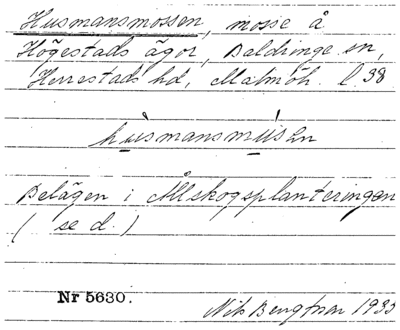 Husmansmossen, mosse å
Högestads ägor, Baldringe sn,
Herrestads hd, Malmöh. l 38
husmansmusen
Belägen i Ålskogsplanteringen
( se d. )
Nr 5630.
Nils Bengtsson 1933